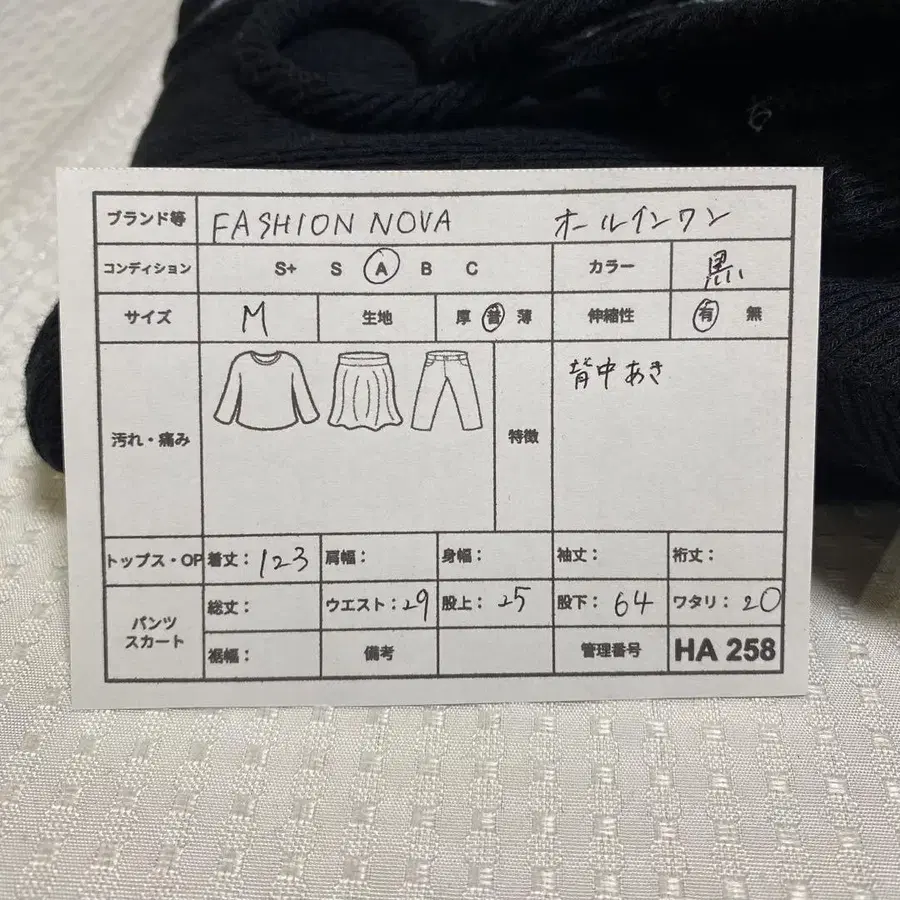 ブランド等 FASHION NOVA オールインワン
コンディション S+ S A B C カラー 黒
サイズ M 生地 厚 普 薄 伸縮性 有 無
汚れ・痛み 特徴 背中あき
トップス・OP 着丈：123 肩幅： 身幅： 袖丈： 裄丈：
パンツ スカート 総丈： ウエスト：29 股上：25 股下：64 ワタリ：20
裾幅： 備考 管理番号 HA 258